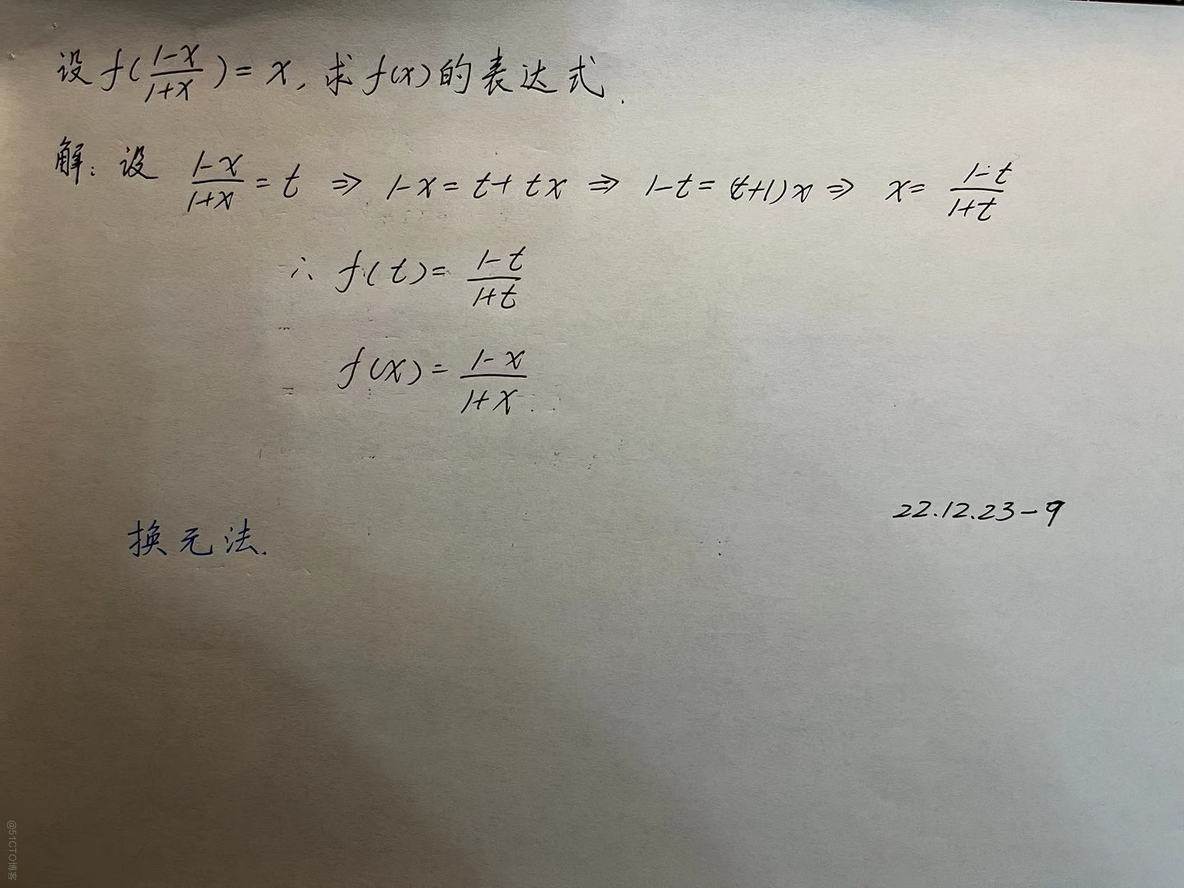 设 f(\frac{1-x}{1+x}) = x, 求 f(x) 的表达式.
解: 设 \frac{1-x}{1+x} = t ⇒ 1-x = t+tx ⇒ 1-t = (t+1)x ⇒ x = \frac{1-t}{1+t}
∴ f(t) = \frac{1-t}{1+t}
f(x) = \frac{1-x}{1+x}.
22.12.23-9
换元法.
@51CTO博客